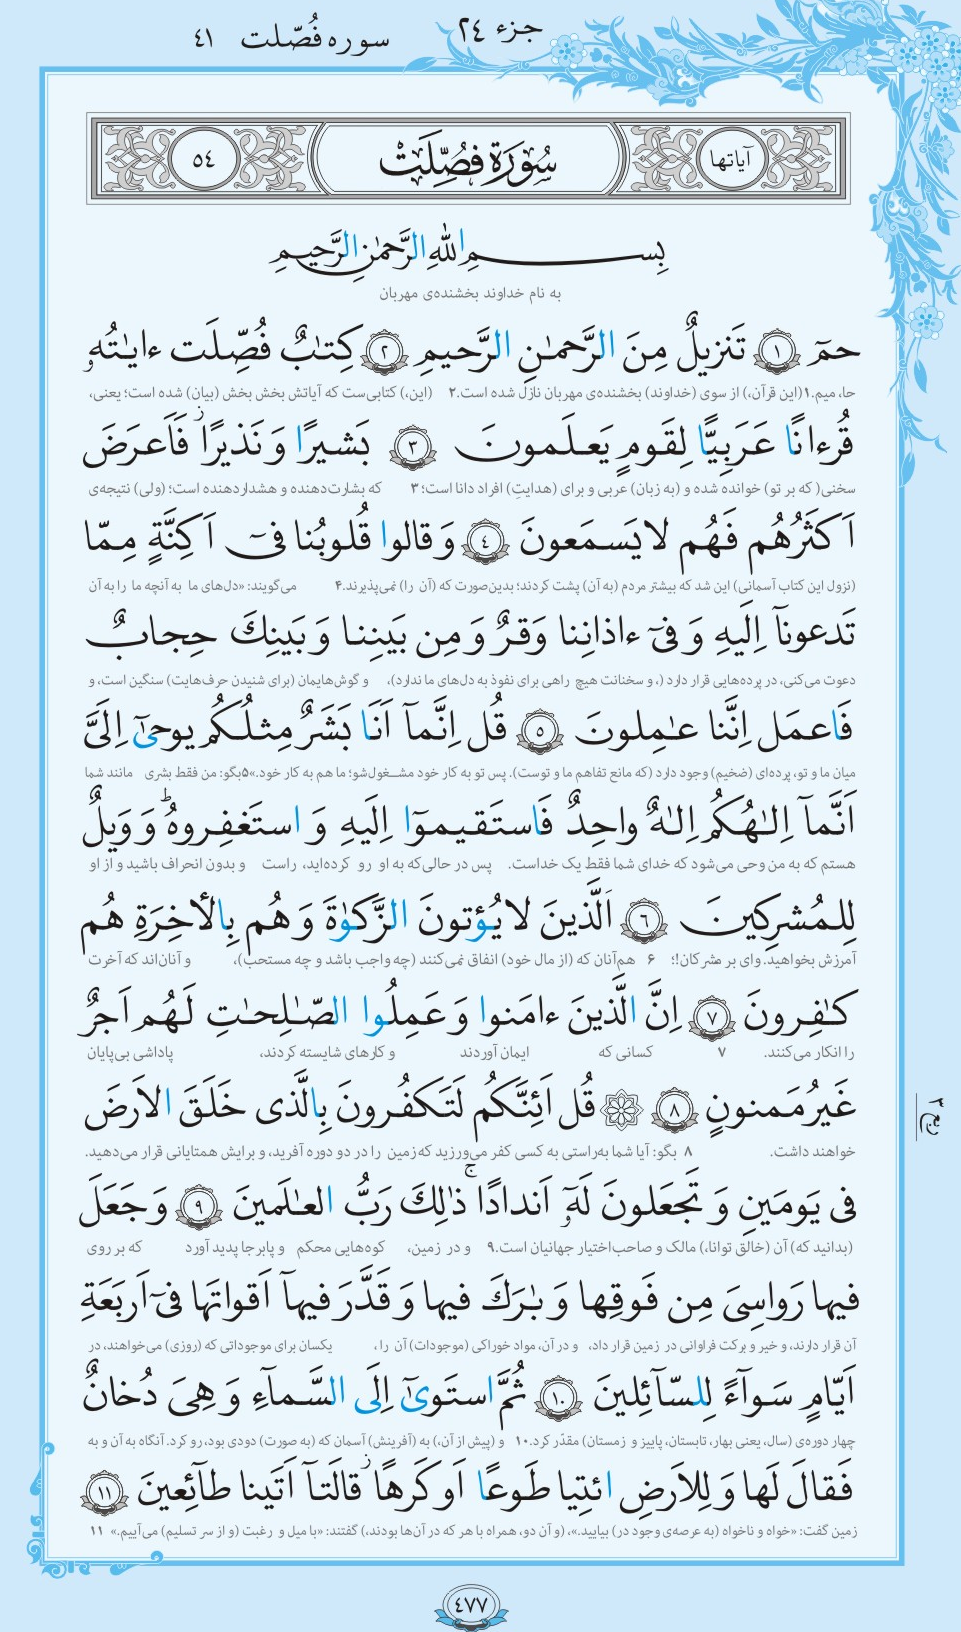 جزء ۲۴
سوره فُصّلت ۴۱
آیاتها
سُورَة فُصِّلَتْ
٥٤
بِسمِ اللهِ الرَّحمٰنِ الرَّحیمِ
به نام خداوند بخشنده‌ی مهربان
حمٓ ١ تَنزیلٌ مِنَ الرَّحمـٰنِ الرَّحیمِ ٢ کِتـٰبٌ فُصِّلَت ءایـٰتُهٗ
حا، میم.۱ (این قرآن،) از سوی (خداوند) بخشنده‌ی مهربان نازل شده است.۲ (این،) کتابی‌ست که آیاتش بخش بخش (بیان) شده است؛ یعنی،
قُرءانًا عَرَبِیًّا لِقَومٍ یَعلَمونَ ٣ بَشیرًا وَ نَذیرًاۚ فَاَعرَضَ
سخنی (که بر تو) خوانده شده و (به زبان) عربی و برای (هدایتِ) افراد دانا است؛ ۳ که بشارت‌دهنده و هشداردهنده است؛ (ولی) نتیجه‌ی
اَکثَرُهُم فَهُم لا یَسمَعونَ ٤ وَ قالوا قُلوبُنا فیٓ اَکِنَّةٍ مِمّا
(نزول این کتاب آسمانی) این شد که بیشتر مردم (به آن) پشت کردند؛ بدین‌صورت که (آن را) نمی‌پذیرند.۴ می‌گویند: «دل‌های ما به آنچه ما را به آن
تَدعونآ اِلَیهِ وَ فیٓ ءاذانِنا وَقرٌ وَ مِن بَینِنا وَ بَینِکَ حِجابٌ
دعوت می‌کنی، در پرده‌هایی قرار دارد (، و سخنانت هیچ راهی برای نفوذ به دل‌های ما ندارد)، و گوش‌هایمان (برای شنیدن حرف‌هایت) سنگین است، و
فَاعمَل اِنَّنا عـٰمِلونَ ٥ قُل اِنَّمآ اَنَا بَشَرٌ مِثلُکُم یوحیٰٓ اِلَیَّ
میان ما و تو، پرده‌ای (ضخیم) وجود دارد (که مانع تفاهم ما و توست). پس تو به کار خود مشـغول شو؛ ما هم به کار خود.»۵ بگو: من فقط بشری مانند شما
اَنَّمآ اِلـٰهُکُم اِلـٰهٌ واحِدٌ فَاستَقیموٓا اِلَیهِ وَ استَغفِروهُۗ وَ وَیلٌ
هستم که به من وحی می‌شود که خدای شما فقط یک خداست. پس در حالی‌که به او رو کرده‌اید، راست و بدون انحراف باشید و از او
لِلمُشرِکینَ ٦ اَلَّذینَ لا یُؤتونَ الزَّکوٰةَ وَ هُم بِالأخِرَةِ هُم
آمرزش بخواهید. وای بر مشرکان!؛ ۶ هم‌آنان که (از مال خود) انفاق نمی‌کنند (چه واجب باشد و چه مستحب)، و آنان‌اند که آخرت
کـٰفِرونَ ٧ اِنَّ الَّذینَ ءامَنوا وَ عَمِلُوا الصّـٰلِحـٰتِ لَهُم اَجرٌ
را انکار می‌کنند. ۷ کسانی که ایمان آوردند و کارهای شایسته کردند، پاداشی بی‌پایان
غَیرُ مَمنونٍ ٨ قُل اَئِنَّکُم لَتَکفُرونَ بِالَّذی خَلَقَ الاَرضَ
ربع ۲
خواهند داشت. ۸ بگو: آیا شما به‌راستی به کسی کفر می‌ورزید که زمین را در دو دوره آفرید، و برایش همتایانی قرار می‌دهید.
فی یَومَینِ وَ تَجعَلونَ لَهٗٓ اَندادًاۚ ذٰلِکَ رَبُّ العـٰلَمینَ ٩ وَ جَعَلَ
(بدانید که) آن (خالق توانا،) مالک و صاحب‌اختیار جهانیان است.۹ و در زمین، کوه‌هایی محکم و پابرجا پدید آورد که بر روی
فیها رَواسِیَ مِن فَوقِها وَ بـٰرَکَ فیها وَ قَدَّرَ فیهآ اَقواتَها فیٓ اَربَعَةِ
آن قرار دارند، و خیر و برکت فراوانی در زمین قرار داد، و در آن، مواد خوراکی (موجودات) آن را، یکسان برای موجوداتی که (روزی) می‌خواهند، در
اَیّامٍ سَوآءً لِلسّآئِلینَ ١٠ ثُمَّ استَویٰٓ اِلَی السَّمآءِ وَ هِیَ دُخانٌ
چهار دوره‌ی (سال، یعنی بهار، تابستان، پاییز و زمستان) مقدّر کرد.۱۰ و (پیش از آن،) به (آفرینش) آسمان که (به صورت) دودی بود، رو کرد. آنگاه به آن و به
فَقالَ لَها وَ لِلاَرضِ ائتِیا طَوعًا اَو کَرهًاۚ قالَتآ اَتَینا طآئِعینَ ١١
زمین گفت: «خواه و ناخواه (به عرصه‌ی وجود در) بیایید.»، (و آن دو، همراه با هر که در آن‌ها بودند،) گفتند: «با میل و رغبت (و از سر تسلیم) می‌آییم.» ۱۱
٤٧٧